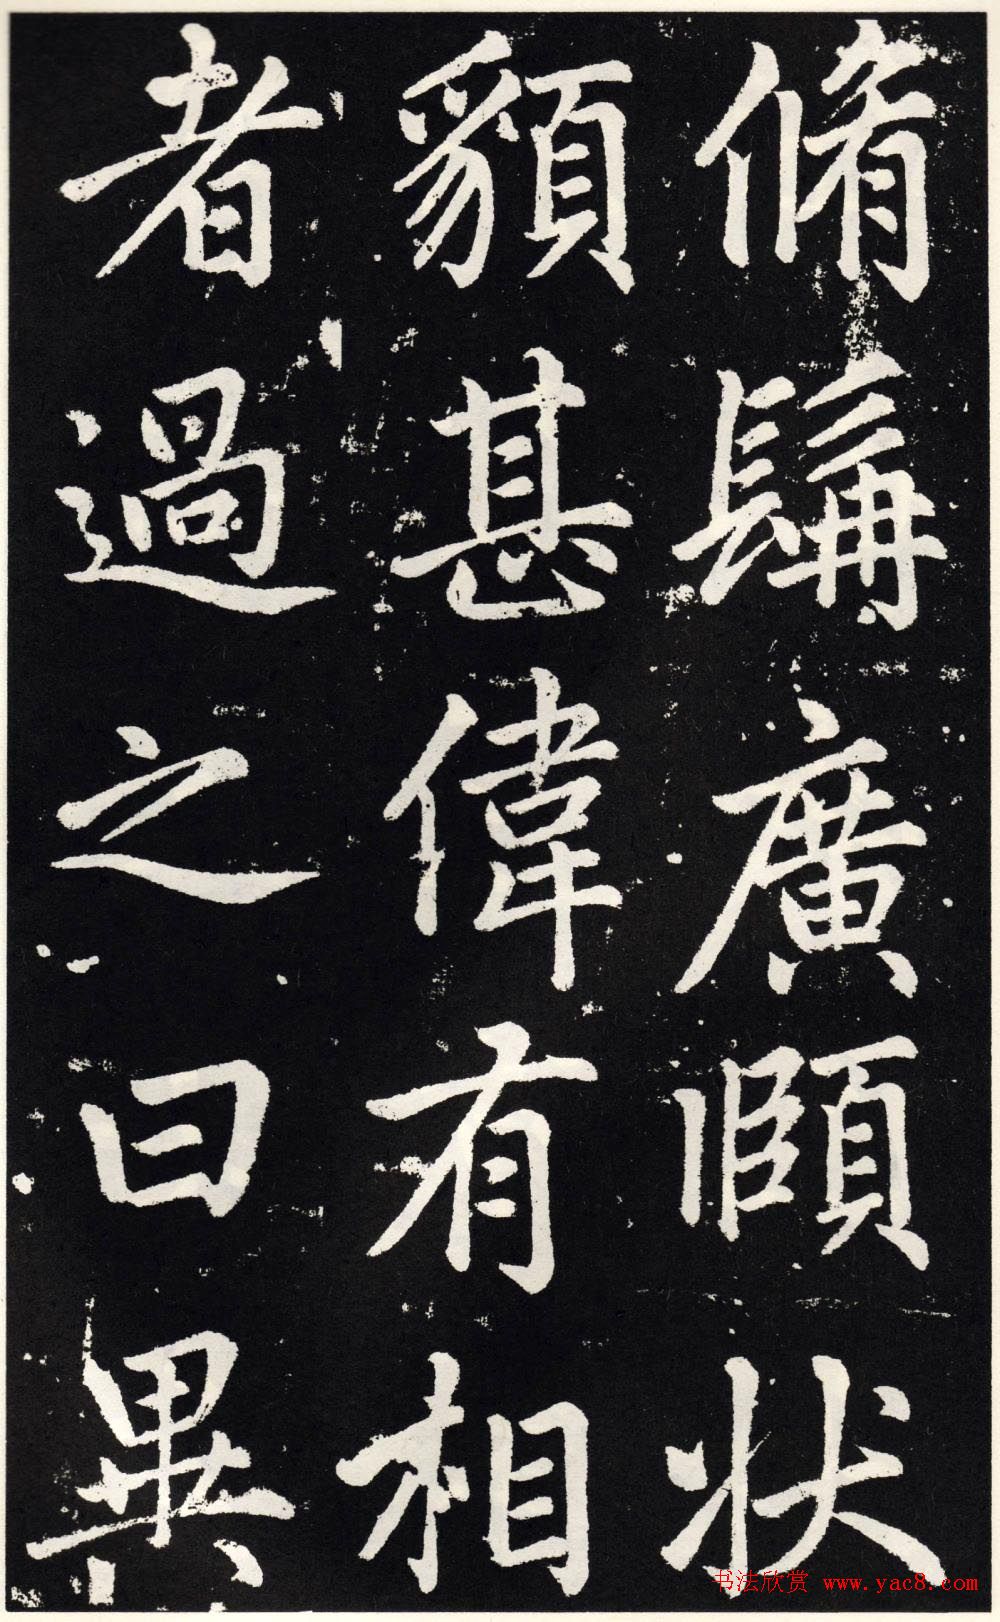 脩髯廣頤狀
貌甚偉有相
者過之曰異
书法欣赏 www.yac8.com